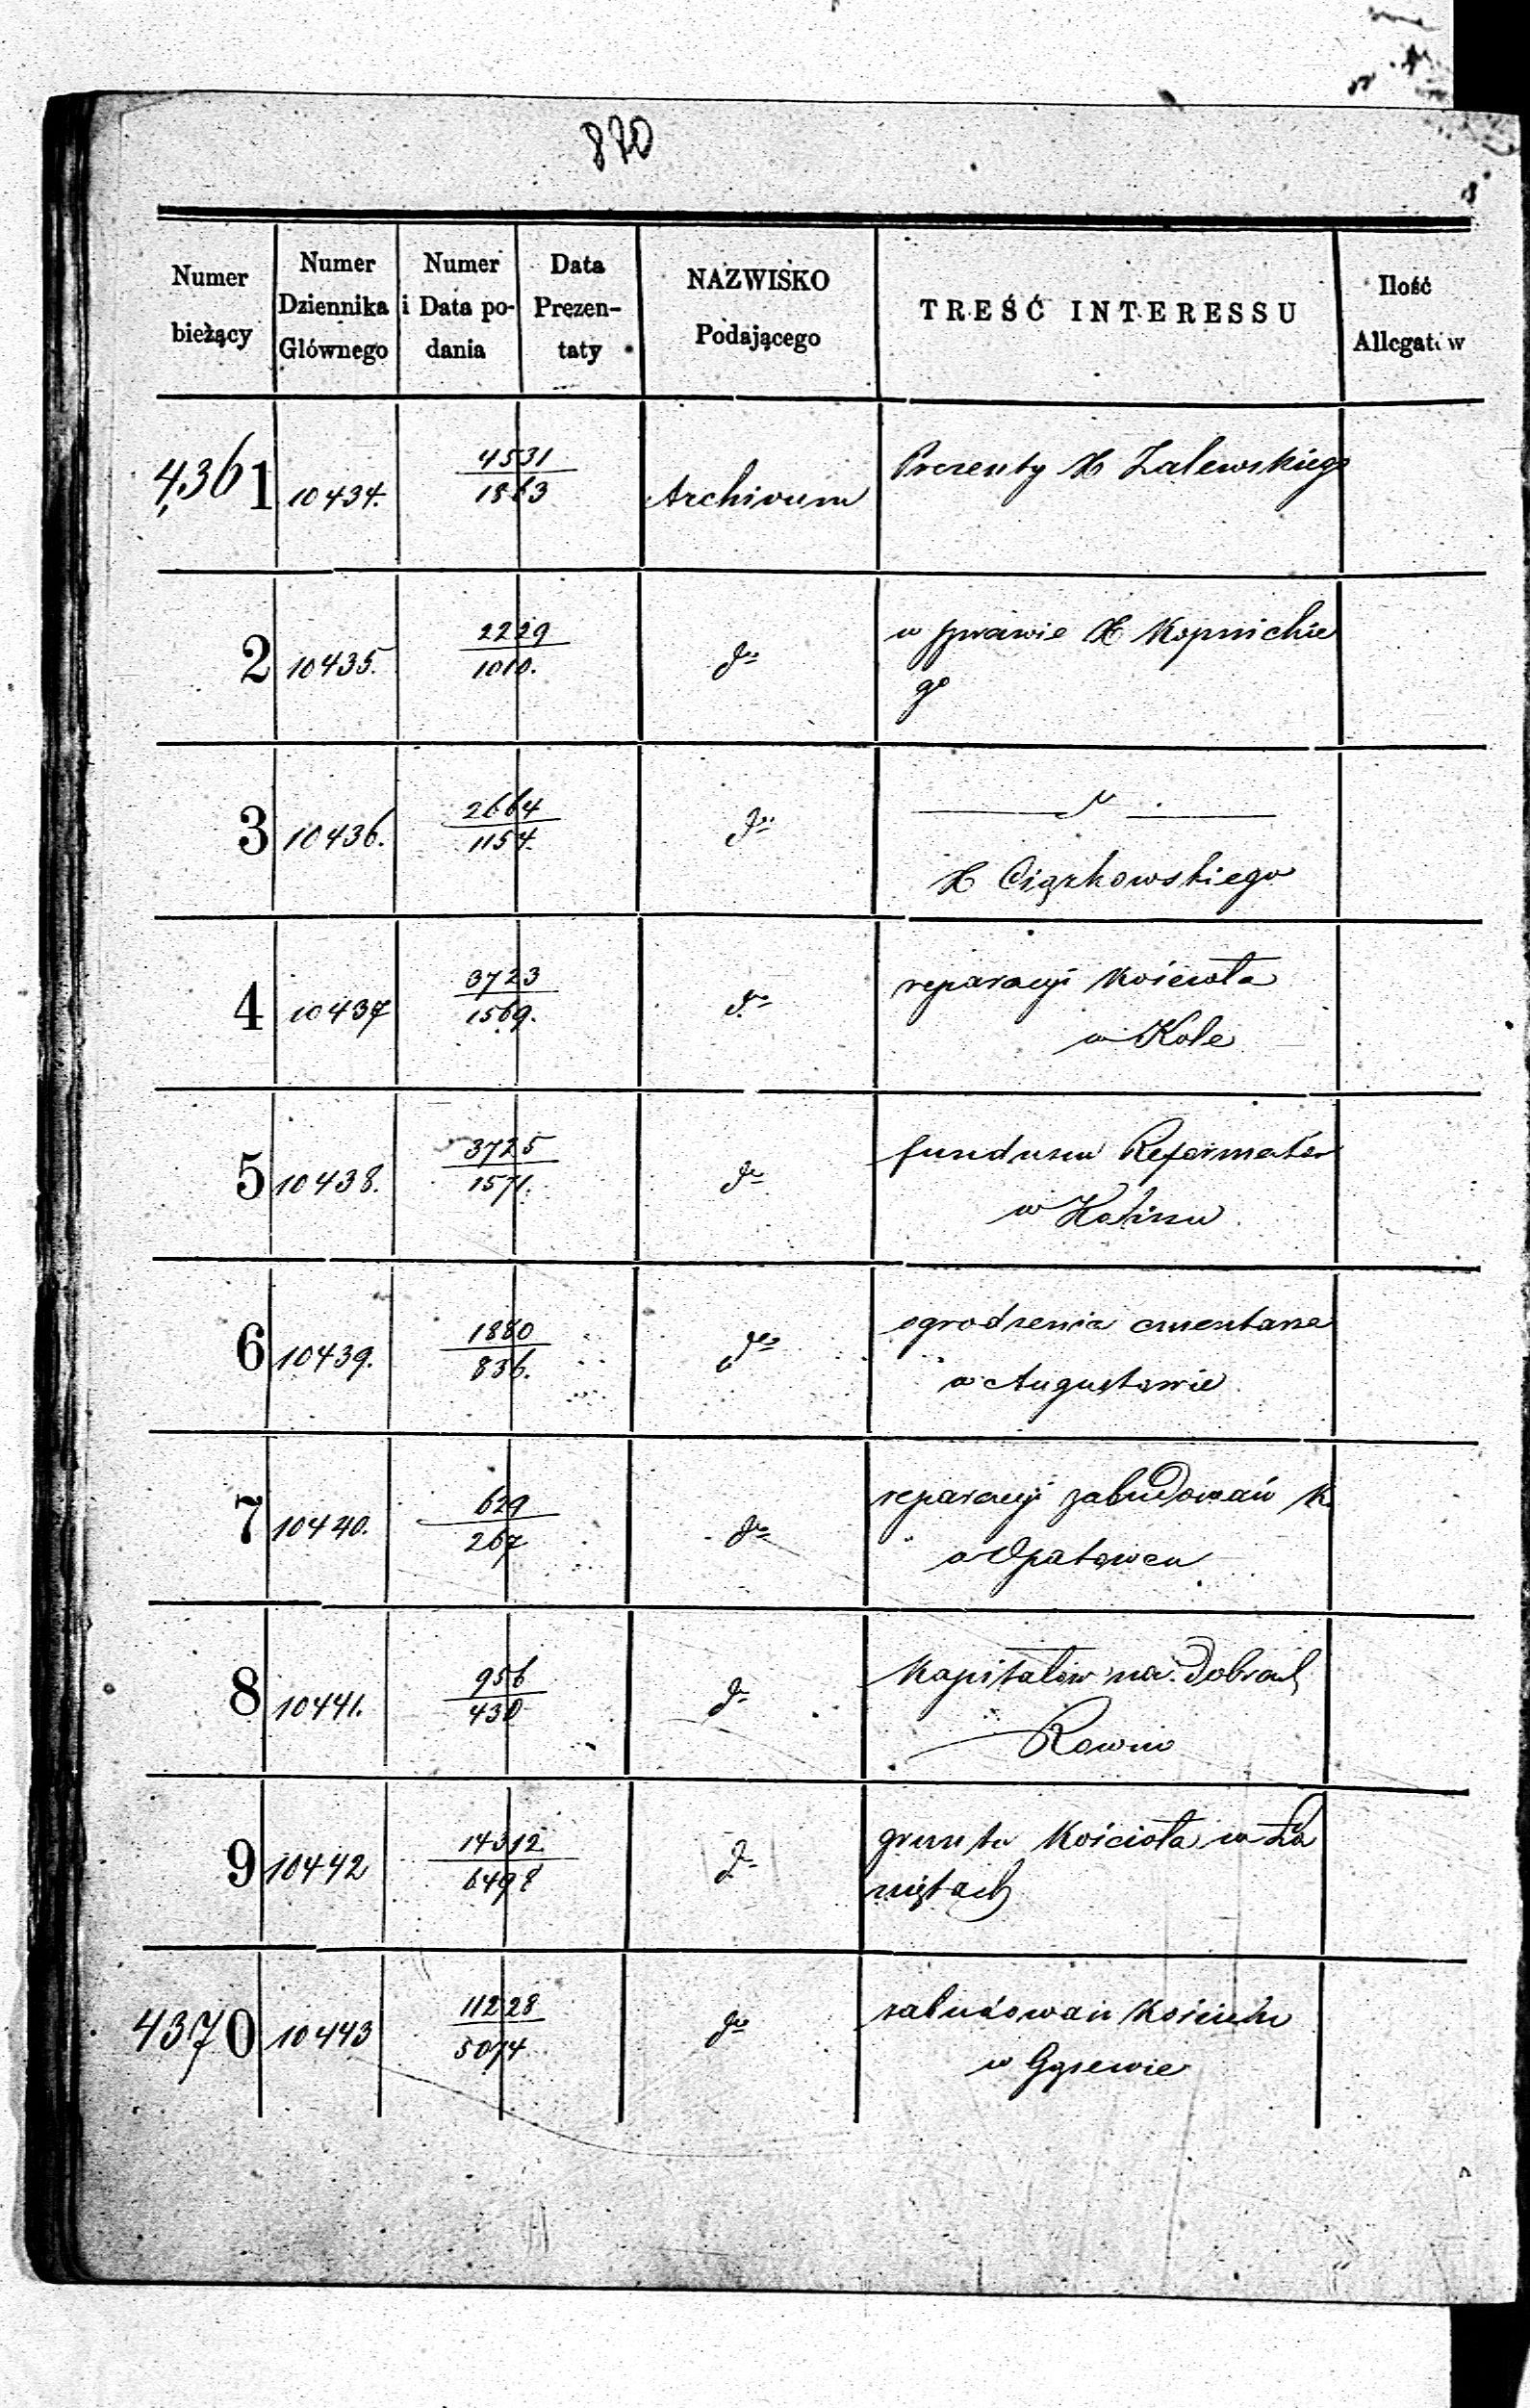 870
Numer bieżący | Numer Dziennika Głównego | Numer i Data podania | Data Prezentaty | NAZWISKO Podającego | TREŚĆ INTERESSU | Ilość Allegatów
4361 | 10434. | 4531 / 1863 | Archivum | Prezenty X Zalewskiego
2 | 10435. | 2229 / 1010. | do | w sprawie X Kopnickie
go
3 | 10436. | 2664 / 1154. | do | — „ —
X Ciążkowskiego
4 | 10437 | 3723 / 1569. | do | reparacyi Kościoła
w Kole
5 | 10438. | 3725 / 1571. | do | funduszu Reformatów
w Kaliszu
6 | 10439. | 1880 / 836. | do | ogrodzenia cmentarza
w Augustowie
7 | 10440. | 629 / 267 | do | reparacyi zabudowań K
w Opatowcu
8 | 10441. | 956 / 430 | do | Kapitałów na Dobrach
9 | 10442 | 14312 / 6498 | do | gruntu Kościoła w Ła
niętach
4370 | 10443 | 11228 / 5074 | do | zabudowań Kościoła
w Gąsewie